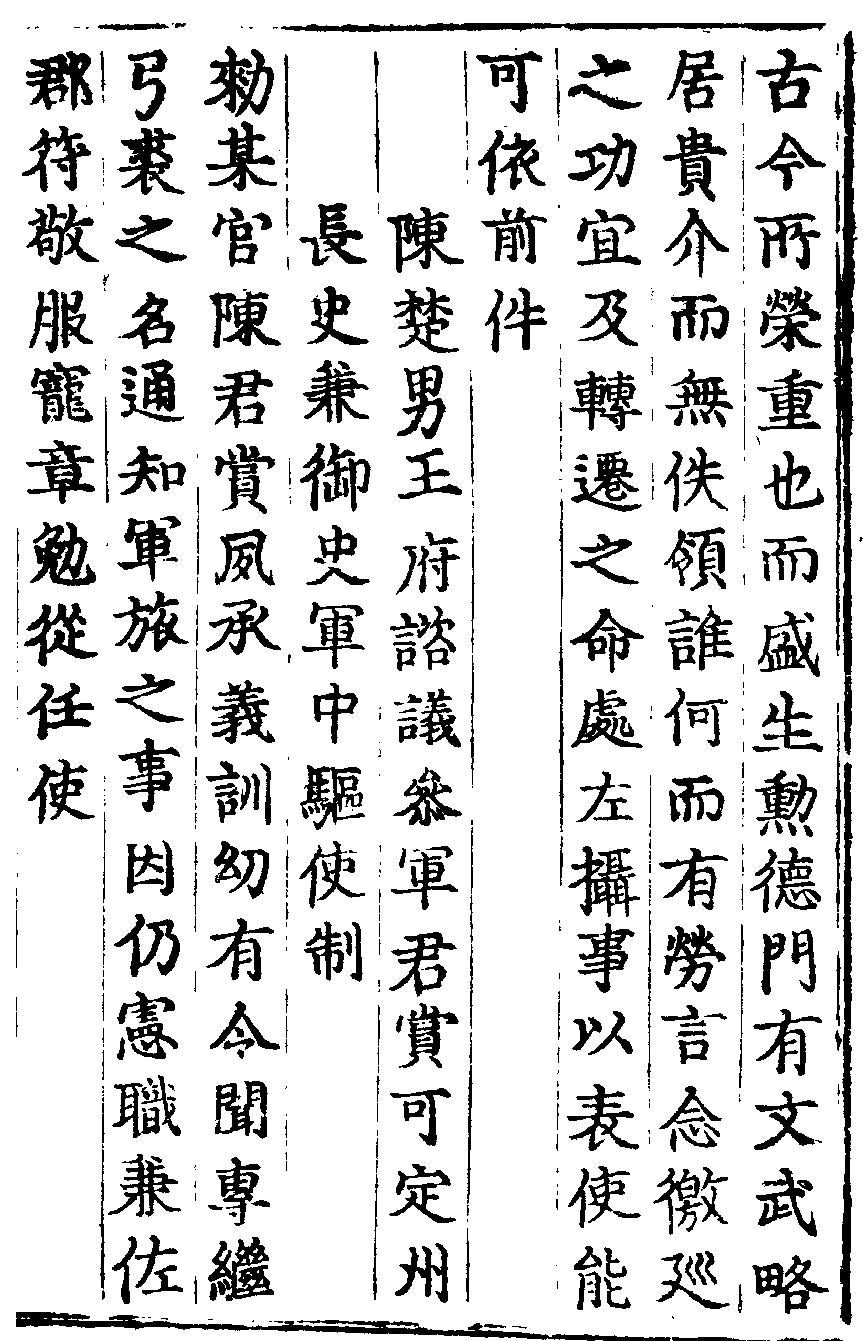 古今所榮重也而盛生勲德門有文武略
居貴介而無佚領誰何而有勞言念徼廵
之功宜及轉遷之命處左攝事以表使能
可依前件
陳楚男王府諮議叅軍君賞可定州
長史兼御史軍中驅使制
勑某官陳君賞夙承義訓幼有令聞專繼
弓裘之名通知軍旅之事因仍憲職兼佐
郡符敬服寵章勉從任使